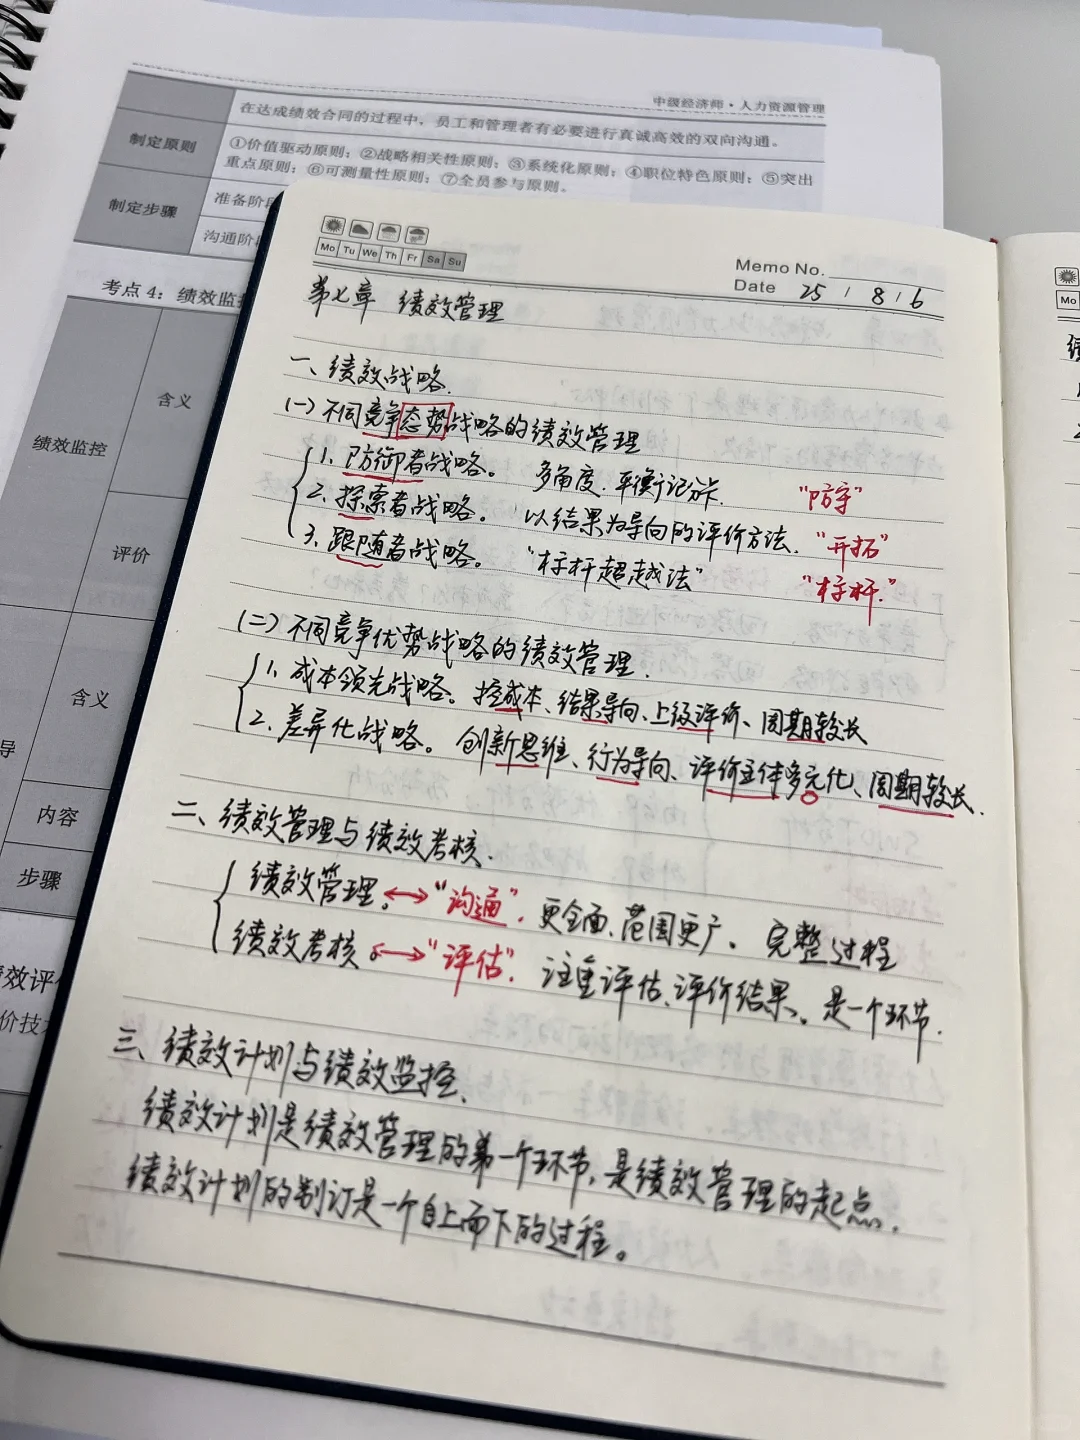 中级经济师·人力资源管理
在达成绩效合同的过程中，员工和管理者有必要进行真诚高效的双向沟通。
制定原则
①价值驱动原则；②战略相关性原则；③系统化原则；④职位特色原则；⑤突出
重点原则；⑥可测量性原则；⑦全员参与原则。
制定步骤
准备阶段
沟通阶
考点 4：绩效监控
绩效监控
含义
评价
导
含义
内容
步骤
绩效评价
价技术
Mo Tu We Th Fr Sa Su
Memo No.
Date 25 / 8 / 6
第七章 绩效管理
一、绩效战略.
(一)不同竞争态势战略的绩效管理
1. 防御者战略。 多角度.平衡记分卡. "防守"
2. 探索者战略。 以结果为导向的评价方法. "开拓"
3. 跟随者战略。 "标杆超越法" "标杆."
(二)不同竞争优势战略的绩效管理.
1. 成本领先战略。控成本、结果导向、上级评价、周期较长
2. 差异化战略。 创新思维、行为导向、评价主体多元化、周期较长.
二、绩效管理与绩效考核.
绩效管理. ↔ "沟通". 更全面、范围更广。 完整过程
绩效考核 ↔ "评估". 注重评估、评价结果。是一个环节.
三、绩效计划与绩效监控.
绩效计划是绩效管理的第一个环节,是绩效管理的起点.
绩效计划的制订是一个自上而下的过程。
Mo